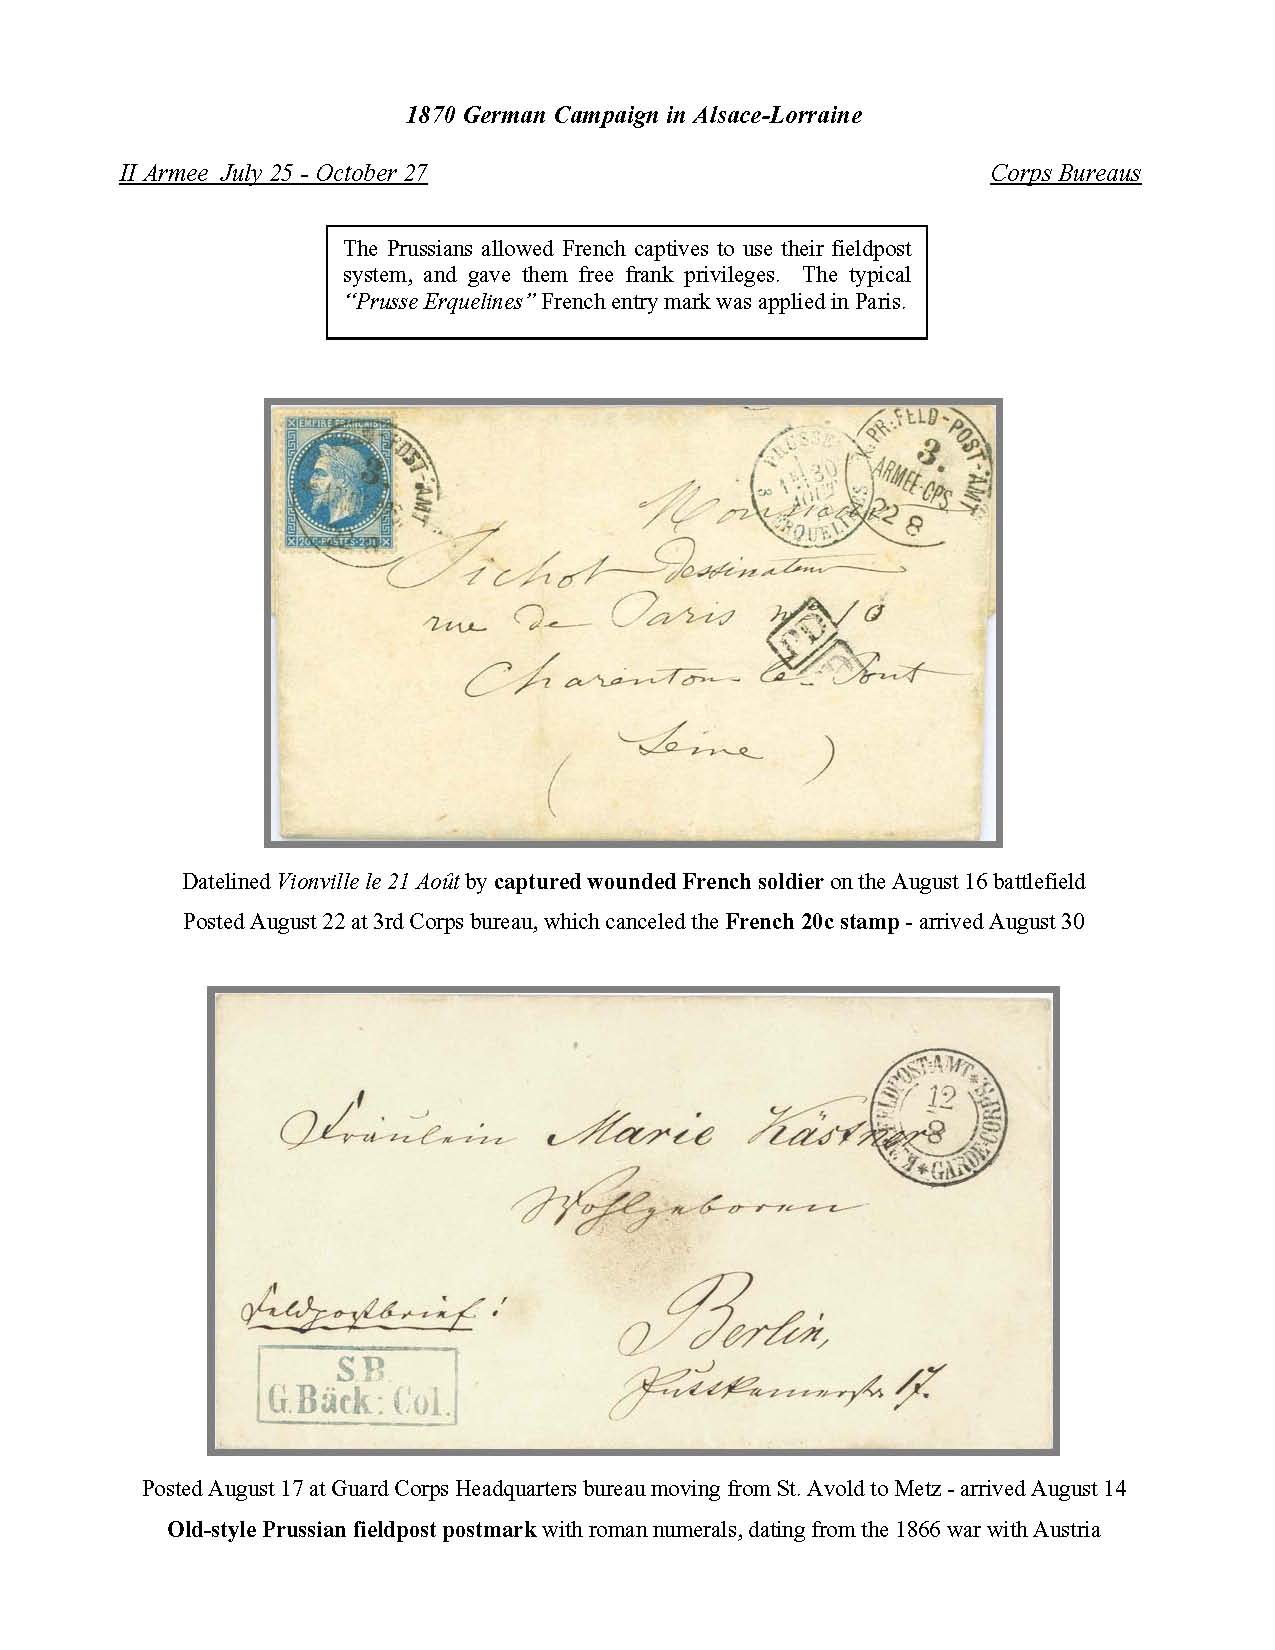 1870 German Campaign in Alsace-Lorraine
II Armee July 25 - October 27
Corps Bureaus
The Prussians allowed French captives to use their fieldpost
system, and gave them free frank privileges. The typical
“Prusse Erquelines” French entry mark was applied in Paris.
EMPIRE FRANCAIS
20c POSTES 20c
POST-AMT
3.
PRUSSE
30
AOUT
3 ERQUELINES
K.PR.FELD-POST-AMT
3.
ARMEE-CPS.
22 8
Monsieur
Pichot dessinateur
rue de Paris no 10
PD
PD
Charenton le Pont
( Seine )
Datelined Vionville le 21 Août by captured wounded French soldier on the August 16 battlefield
Posted August 22 at 3rd Corps bureau, which canceled the French 20c stamp - arrived August 30
FELDPOST-AMT * GARDE-CORPS *
12
8
Fräulein Marie Kästner
Wohlgeboren
Feldpostbrief!
Berlin,
Puttkamerstr 17.
S.B.
G.Bäck: Col.
Posted August 17 at Guard Corps Headquarters bureau moving from St. Avold to Metz - arrived August 14
Old-style Prussian fieldpost postmark with roman numerals, dating from the 1866 war with Austria